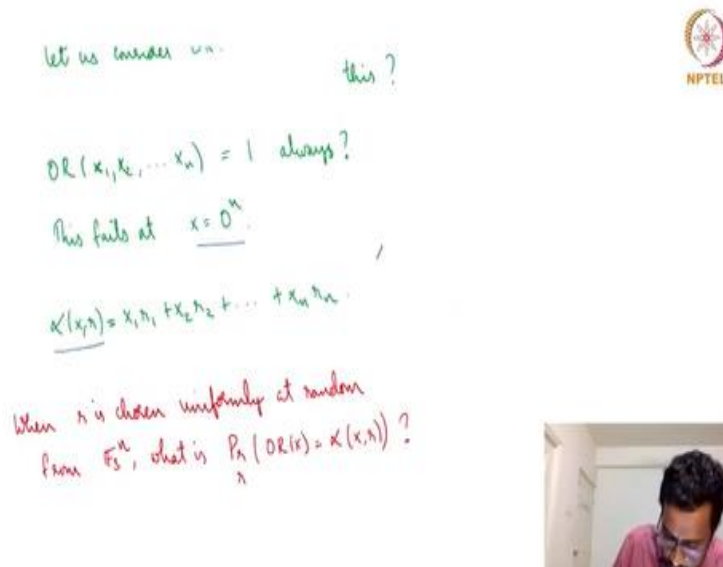 let us consider
this ?
NPTEL
OR(x₁, x₂, ... xₙ) = 1 always ?
This fails at x = 0ⁿ.
α(x,r) = x₁r₁ + x₂r₂ + ... + xₙrₙ.
When r is chosen uniformly at random
from F₃ⁿ, what is Pr (OR(x) = α(x,r)) ?
r